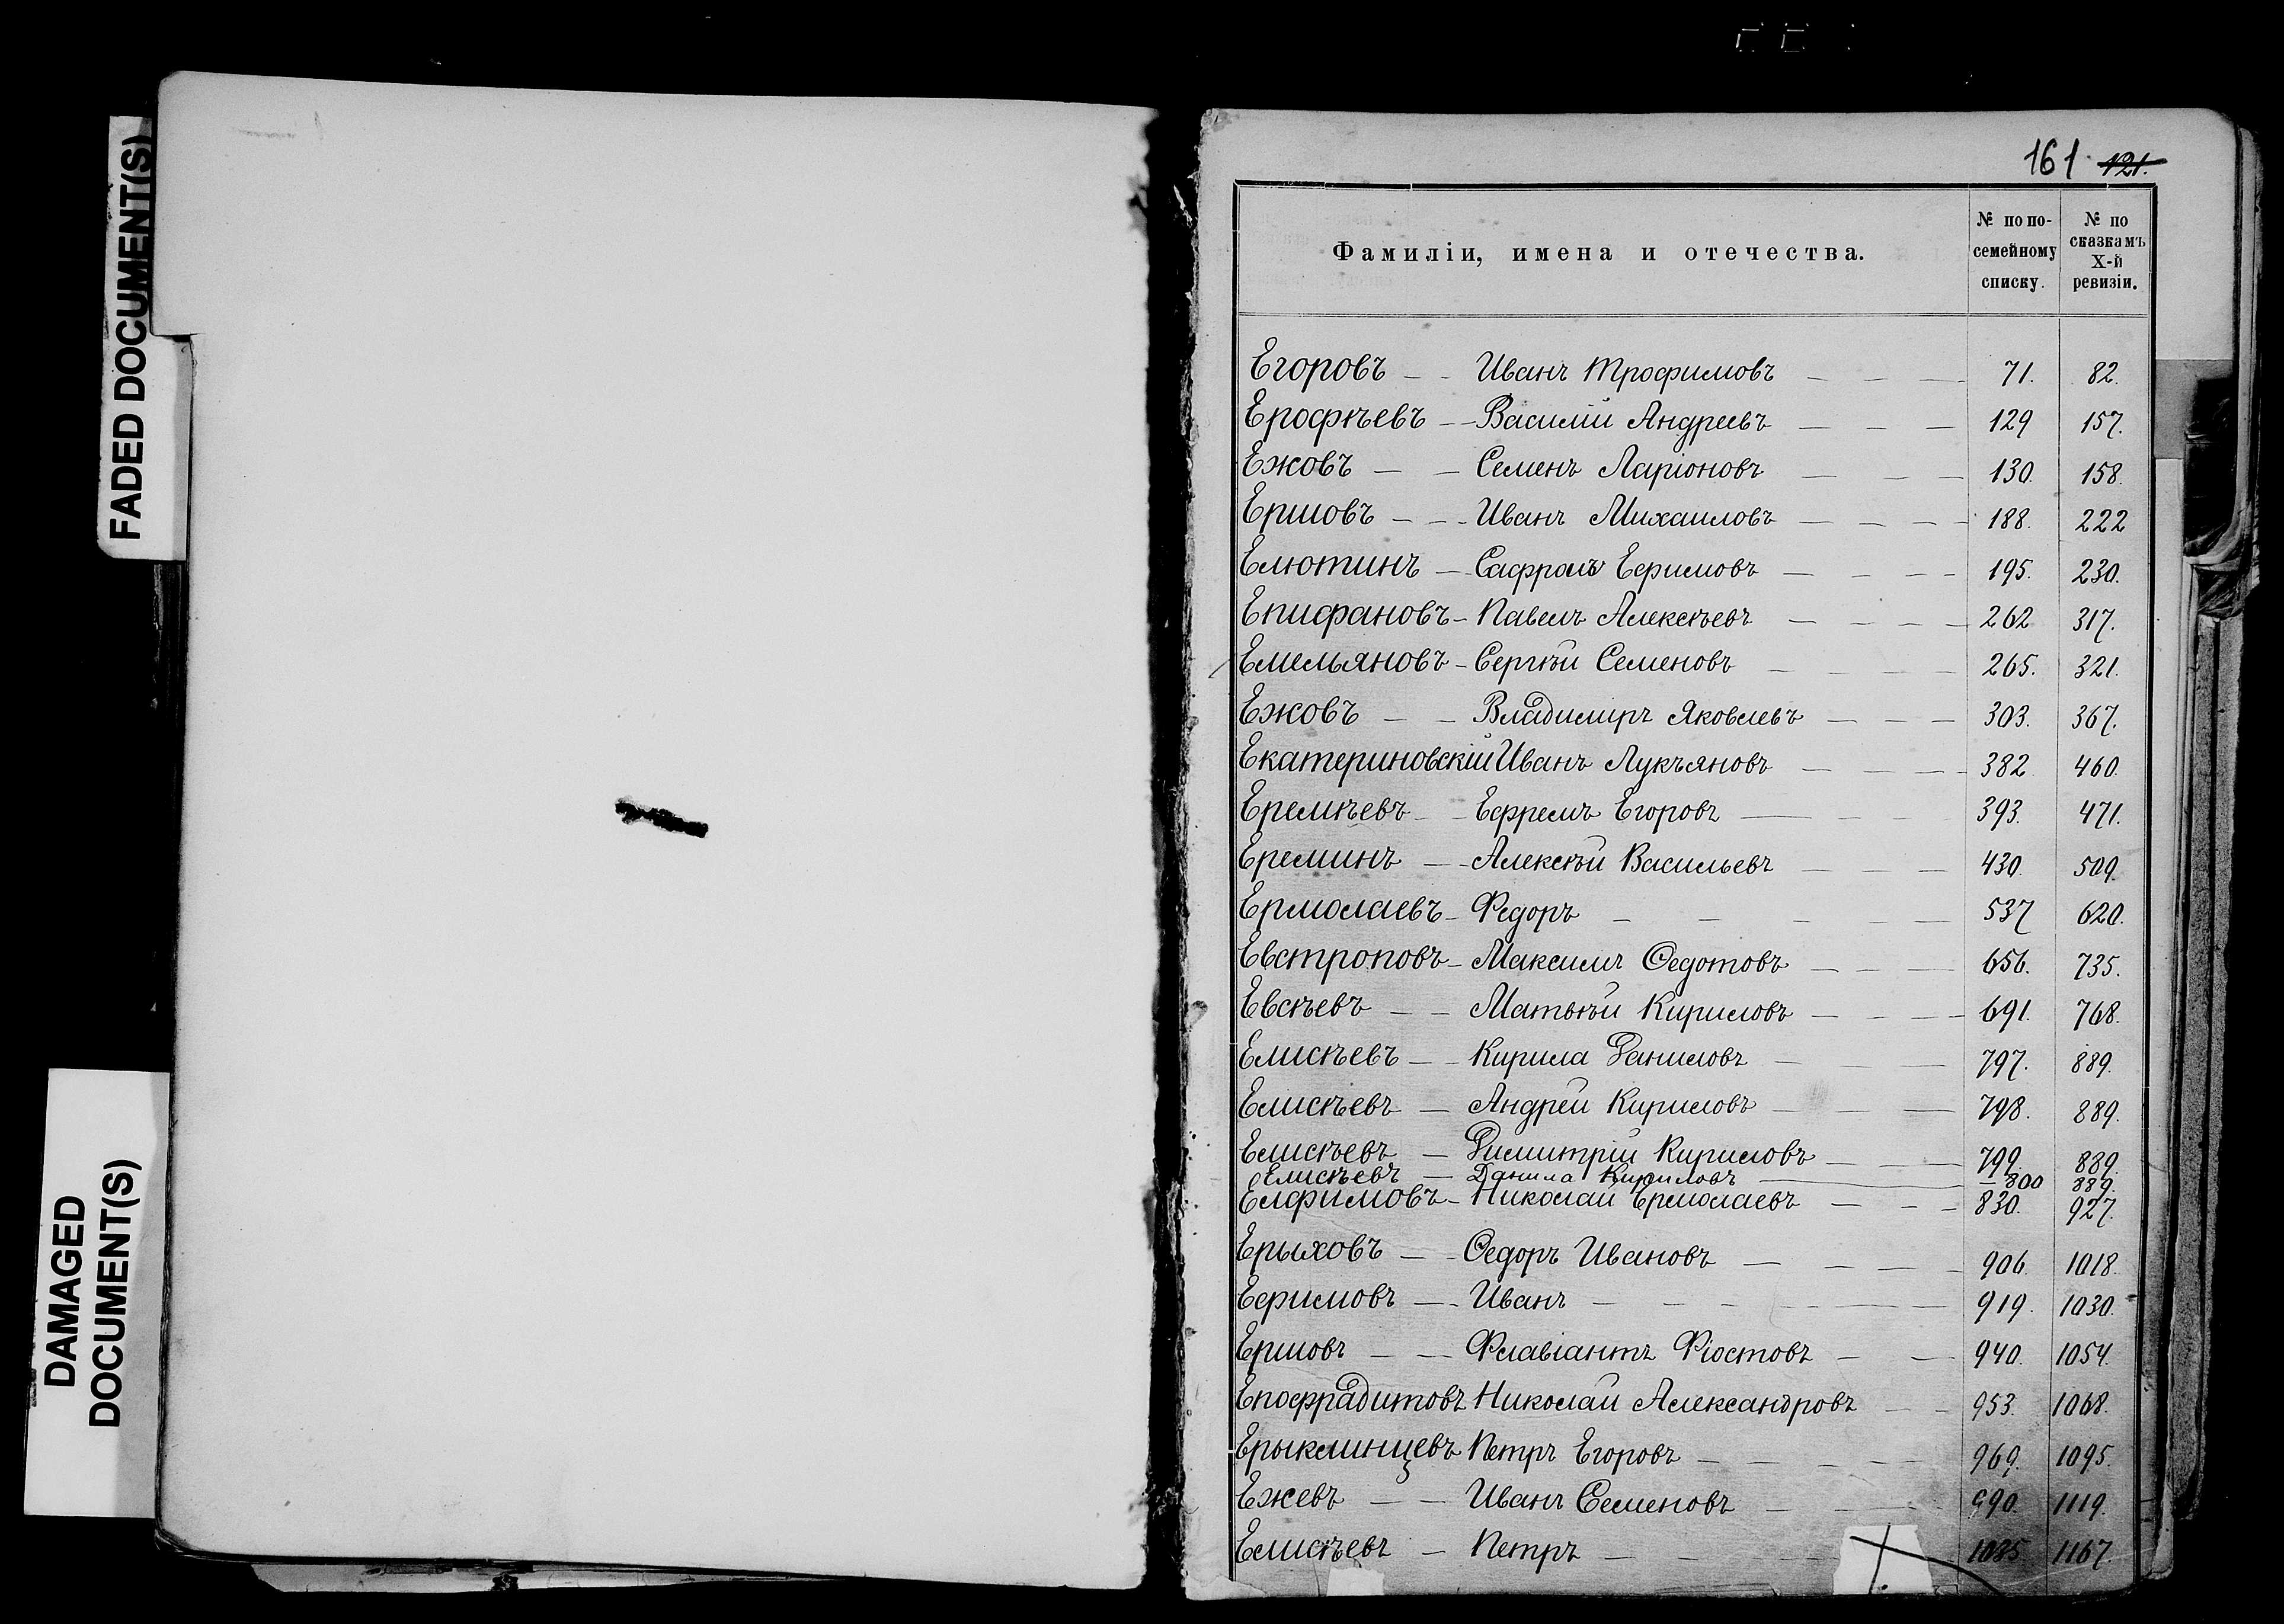 FADED DOCUMENT(S)
DAMAGED
DOCUMENT(S)
161. 121.
Фамиліи, имена и отечества.
№ по по-
семейному
списку.
№ по
сказкамъ
X-й
ревизіи.
Егоровъ — Иванъ Трофимовъ — 71. 82.
Ерофѣевъ — Василій Андреевъ — 129 157.
Ежовъ — Семенъ Ларіоновъ — 130. 158.
Ершовъ — Иванъ Михаиловъ — 188. 222
Елютинъ — Сафронъ Ефимовъ — 195. 230.
Епифановъ — Павелъ Алексѣевъ — 262 317.
Емельяновъ — Сергѣй Семеновъ — 265. 321.
Ежовъ — Владимиръ Яковлевъ — 303. 367.
Екатериновскій Иванъ Лукъяновъ — 382 460.
Еремѣевъ — Ефремъ Егоровъ — 393. 471.
Ереминъ — Алексѣй Васильевъ — 430. 509.
Ермолаевъ — Федоръ — 537 620.
Евстроповъ — Максимъ Ѳедотовъ — 656. 735.
Евсѣевъ — Матвѣй Кириловъ — 691. 768.
Елисѣевъ — Кирила Даниловъ — 797. 889.
Елисѣевъ — Андрей Кириловъ — 798. 889.
Елисѣевъ — Димитрій Кириловъ — 799. 889.
Елисѣевъ — Данила Кириловъ — 800 889.
Елфимовъ — Николай Ермолаевъ — 830. 927.
Ерыховъ — Ѳедоръ Ивановъ — 906. 1018.
Ефимовъ — Иванъ — 919. 1030.
Ершовъ — Флавіантъ Фіостовъ — 940. 1054.
Епофрадитовъ Николай Александровъ — 953. 1068.
Ерыклинцевъ Петръ Егоровъ — 969. 1095.
Ежевъ — Иванъ Семеновъ — 990. 1119.
Елисѣевъ — Петръ — 1035 1167.